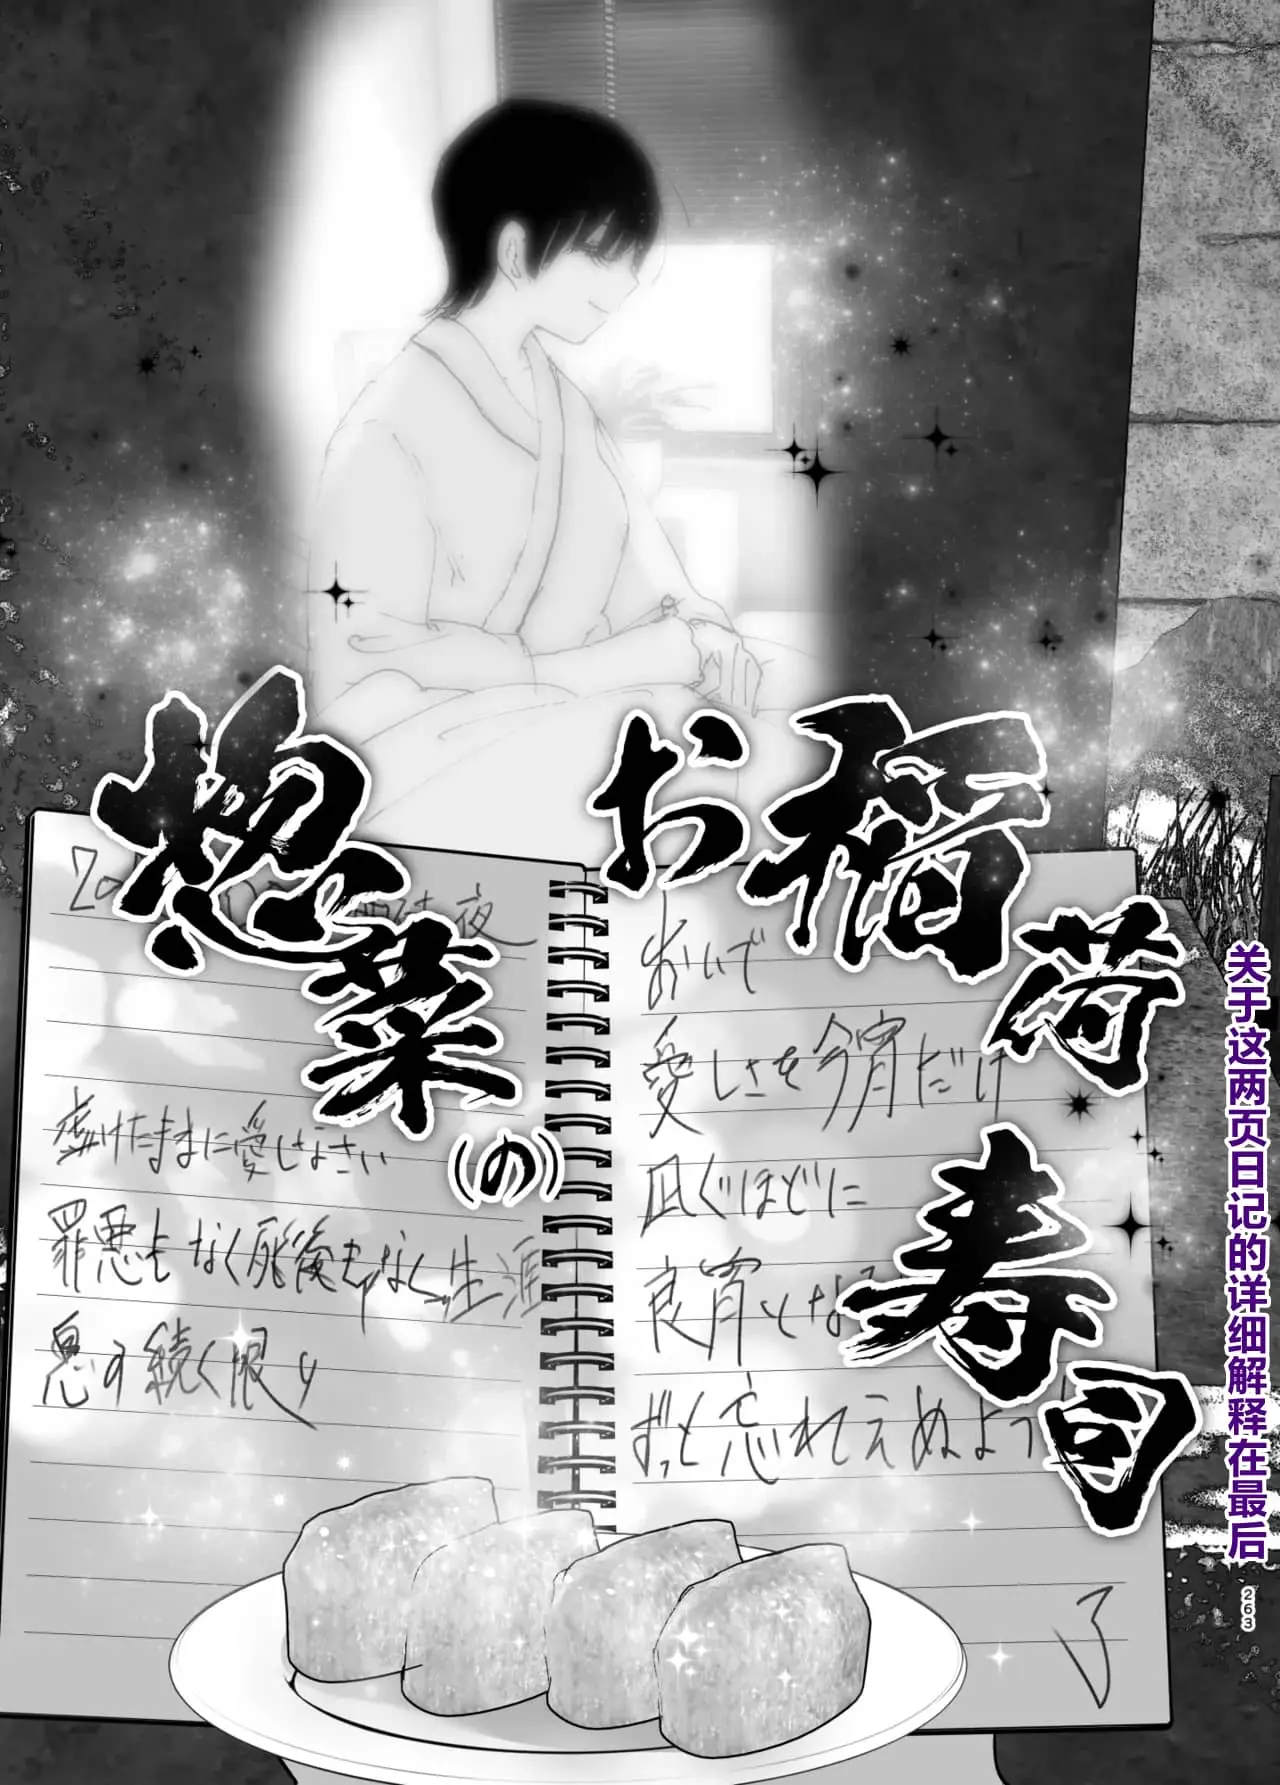 お稲荷寿司
惣菜の
(の)
夜
虚けたままに愛しなさい
罪悪もなく死後もなく生涯
息の続く限り
おいで
愛しさを今宵だけ
凪ぐほどに
良宵とな
ずっと忘れえぬよう
了
关于这两页日记的详细解释在最后
263